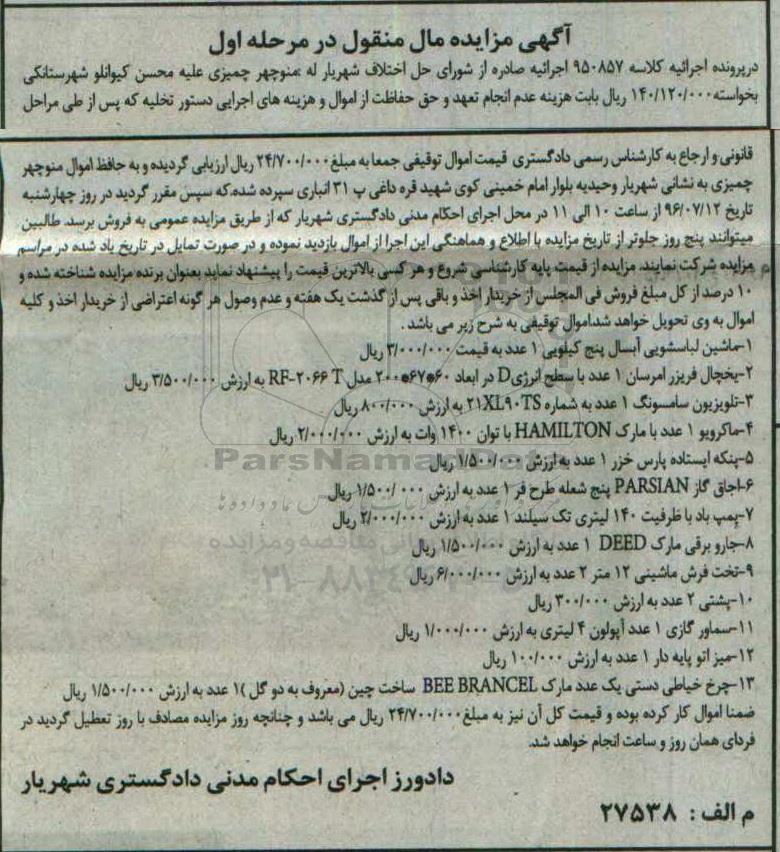 آگهی مزایده مال منقول در مرحله اول
درپرونده اجرائیه کلاسه ۹۵۰۸۵۷ اجرائیه صادره از شورای حل اختلاف شهریار له :منوچهر چمیزی علیه محسن کیوانلو شهرستانکی
بخواسته ۱۴۰/۱۲۰/۰۰۰ ریال بابت هزینه عدم انجام تعهد و حق حفاظت از اموال و هزینه های اجرایی دستور تخلیه که پس از طی مراحل
قانونی و ارجاع به کارشناس رسمی دادگستری قیمت اموال توقیفی جمعا به مبلغ ۲۴/۷۰۰/۰۰۰ ریال ارزیابی گردیده و به حافظ اموال منوچهر
چمیزی به نشانی شهریار وحیدیه بلوار امام خمینی کوی شهید قره داغی پ ۳۱ انباری سپرده شده.که سپس مقرر گردید در روز چهارشنبه
تاریخ ۹۶/۰۷/۱۲ از ساعت ۱۰ الی ۱۱ در محل اجرای احکام مدنی دادگستری شهریار که از طریق مزایده عمومی به فروش برسد. طالبین
میتوانند پنج روز جلوتر از تاریخ مزایده با اطلاع و هماهنگی این اجرا از اموال بازدید نموده و در صورت تمایل در تاریخ یاد شده در مراسم
مزایده شرکت نمایند. مزایده از قیمت پایه کارشناسی شروع و هر کسی بالاترین قیمت را پیشنهاد نماید بعنوان برنده مزایده شناخته شده و
۱۰ درصد از کل مبلغ فروش فی المجلس از خریدار اخذ و باقی پس از گذشت یک هفته و عدم وصول هر گونه اعتراضی از خریدار اخذ و کلیه
اموال به وی تحویل خواهد شد.اموال توقیفی به شرح زیر می باشد .
۱-ماشین لباسشویی آبسال پنج کیلویی ۱ عدد به قیمت ۳/۰۰۰/۰۰۰ ریال
۲-یخچال فریزر امرسان ۱ عدد با سطح انرژی D در ابعاد ۶۰*۶۷*۲۰۰ مدل RF-۲۰۶۶ T به ارزش ۳/۵۰۰/۰۰۰ ریال
۳-تلویزیون سامسونگ ۱ عدد به شماره ۲۱XL۹۰TS به ارزش ۸۰۰/۰۰۰ ریال
۴-ماکرویو ۱ عدد با مارک HAMILTON با توان ۱۴۰۰ وات به ارزش ۲/۰۰۰/۰۰۰ ریال
۵-پنکه ایستاده پارس خزر ۱ عدد به ارزش ۱/۵۰۰/۰۰۰ ریال
ParsNamadData
۶-اجاق گاز PARSIAN پنج شعله طرح فر ۱ عدد به ارزش ۱/۵۰۰/۰۰۰ ریال
۷-پمپ باد با ظرفیت ۱۴۰ لیتری تک سیلند ۱ عدد به ارزش ۲/۰۰۰/۰۰۰ ریال
۸-جارو برقی مارک DEED ۱ عدد به ارزش ۱/۵۰۰/۰۰۰ ریال
۹-تخت فرش ماشینی ۱۲ متر ۲ عدد به ارزش ۶/۰۰۰/۰۰۰ ریال
۱۰-پشتی ۲ عدد به ارزش ۳۰۰/۰۰۰ ریال
۱۱-سماور گازی ۱ عدد آپولون ۴ لیتری به ارزش ۱/۰۰۰/۰۰۰ ریال
۱۲-میز اتو پایه دار ۱ عدد به ارزش ۱۰۰/۰۰۰ ریال
۱۳-چرخ خیاطی دستی یک عدد مارک BEE BRANCEL ساخت چین (معروف به دو گل )۱ عدد به ارزش ۱/۵۰۰/۰۰۰ ریال
ضمنا اموال کار کرده بوده و قیمت کل آن نیز به مبلغ ۲۴/۷۰۰/۰۰۰ ریال می باشد و چنانچه روز مزایده مصادف با روز تعطیل گردید در
فردای همان روز و ساعت انجام خواهد شد.
دادورز اجرای احکام مدنی دادگستری شهریار
م الف : ۲۷۵۳۸